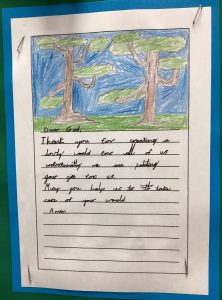 Dear God,
Thank you for creating a
lovely world for all of us
unfortunatly we are putting
your for us.
May you help us to to take
care of your world
Amen